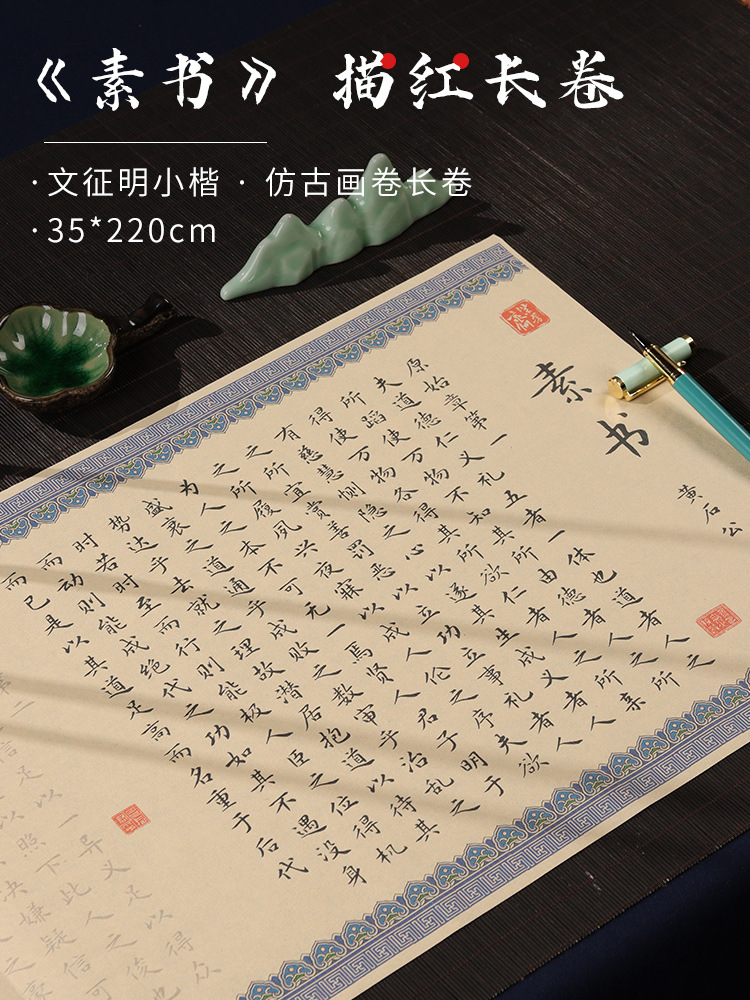 《素书》 描红长卷
·文征明小楷 · 仿古画卷长卷
·35*220cm
素书
黄石公
原始章第一
夫道德仁义礼五者一体也道者人之
所蹈使万物不知其所由德者人之所
得使万物各得其所欲仁者人之所亲
有慈慧恻隐之心以遂其生成义者人
之所宜赏善罚恶以立功立事礼者人
之所履夙兴夜寐以成人伦之序夫欲
为人之本不可无一焉贤人君子明于
盛衰之道通乎成败之数审乎治乱之
势达乎去就之理故潜居抱道以待其
时若时至而行则能极人臣之位得机
而动则能成绝代之功如其不遇没身
而已是以其道足高而名重于后代